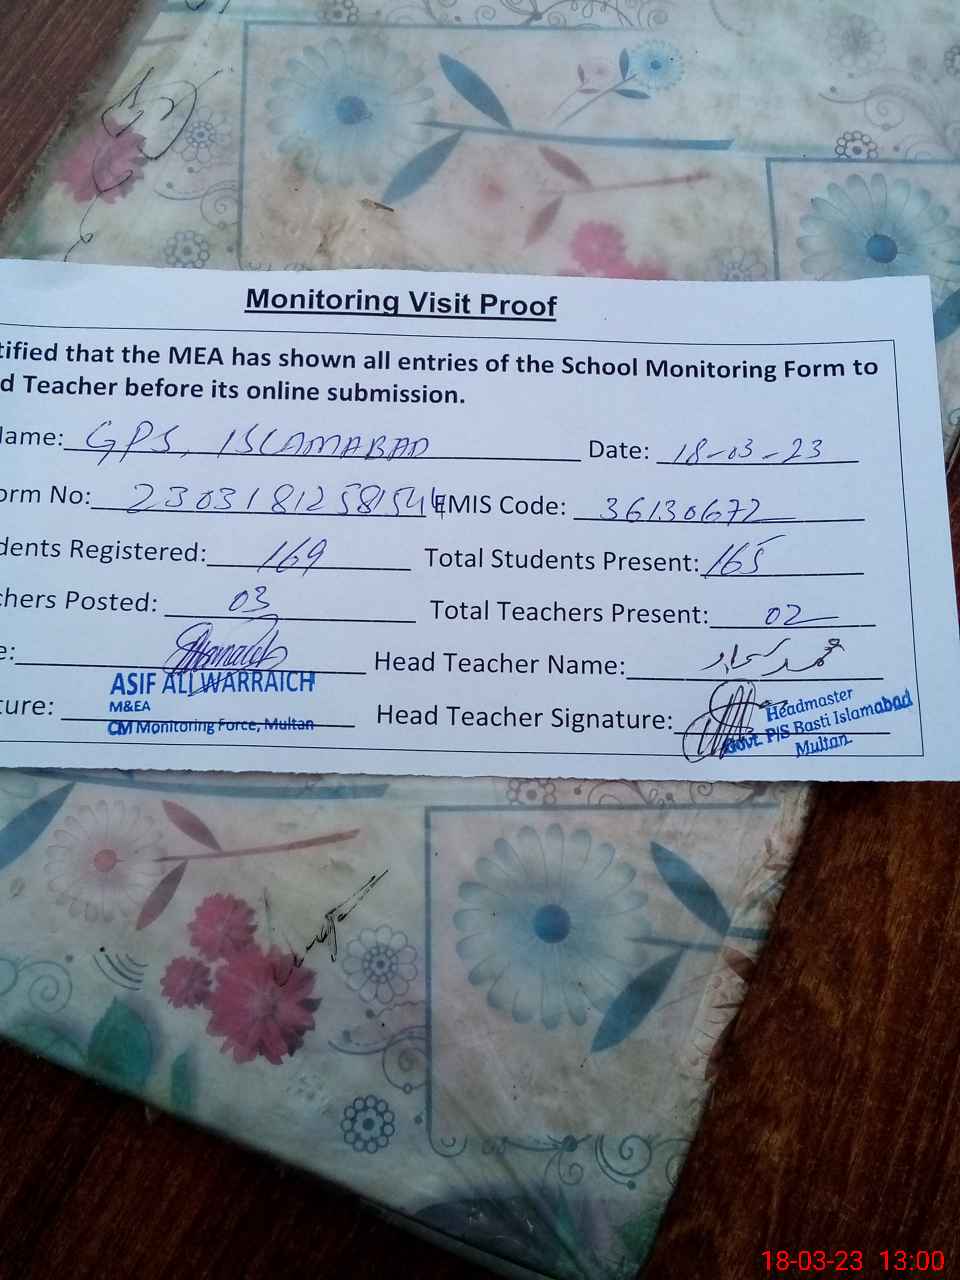 Monitoring Visit Proof
tified that the MEA has shown all entries of the School Monitoring Form to
d Teacher before its online submission.
Name: GPS, ISLAMABAD Date: 18-03-23
orm No: EMIS Code: 36130672
dents Registered: 169 Total Students Present: 165
chers Posted: 03 Total Teachers Present: 02
e: Head Teacher Name: محمد
ASIF ALI WARRAICH
M&EA
ture: CM Monitoring Force, Multan Head Teacher Signature:
Headmaster
Govt. P/S Basti Islamabad
Multan
18-03-23 13:00